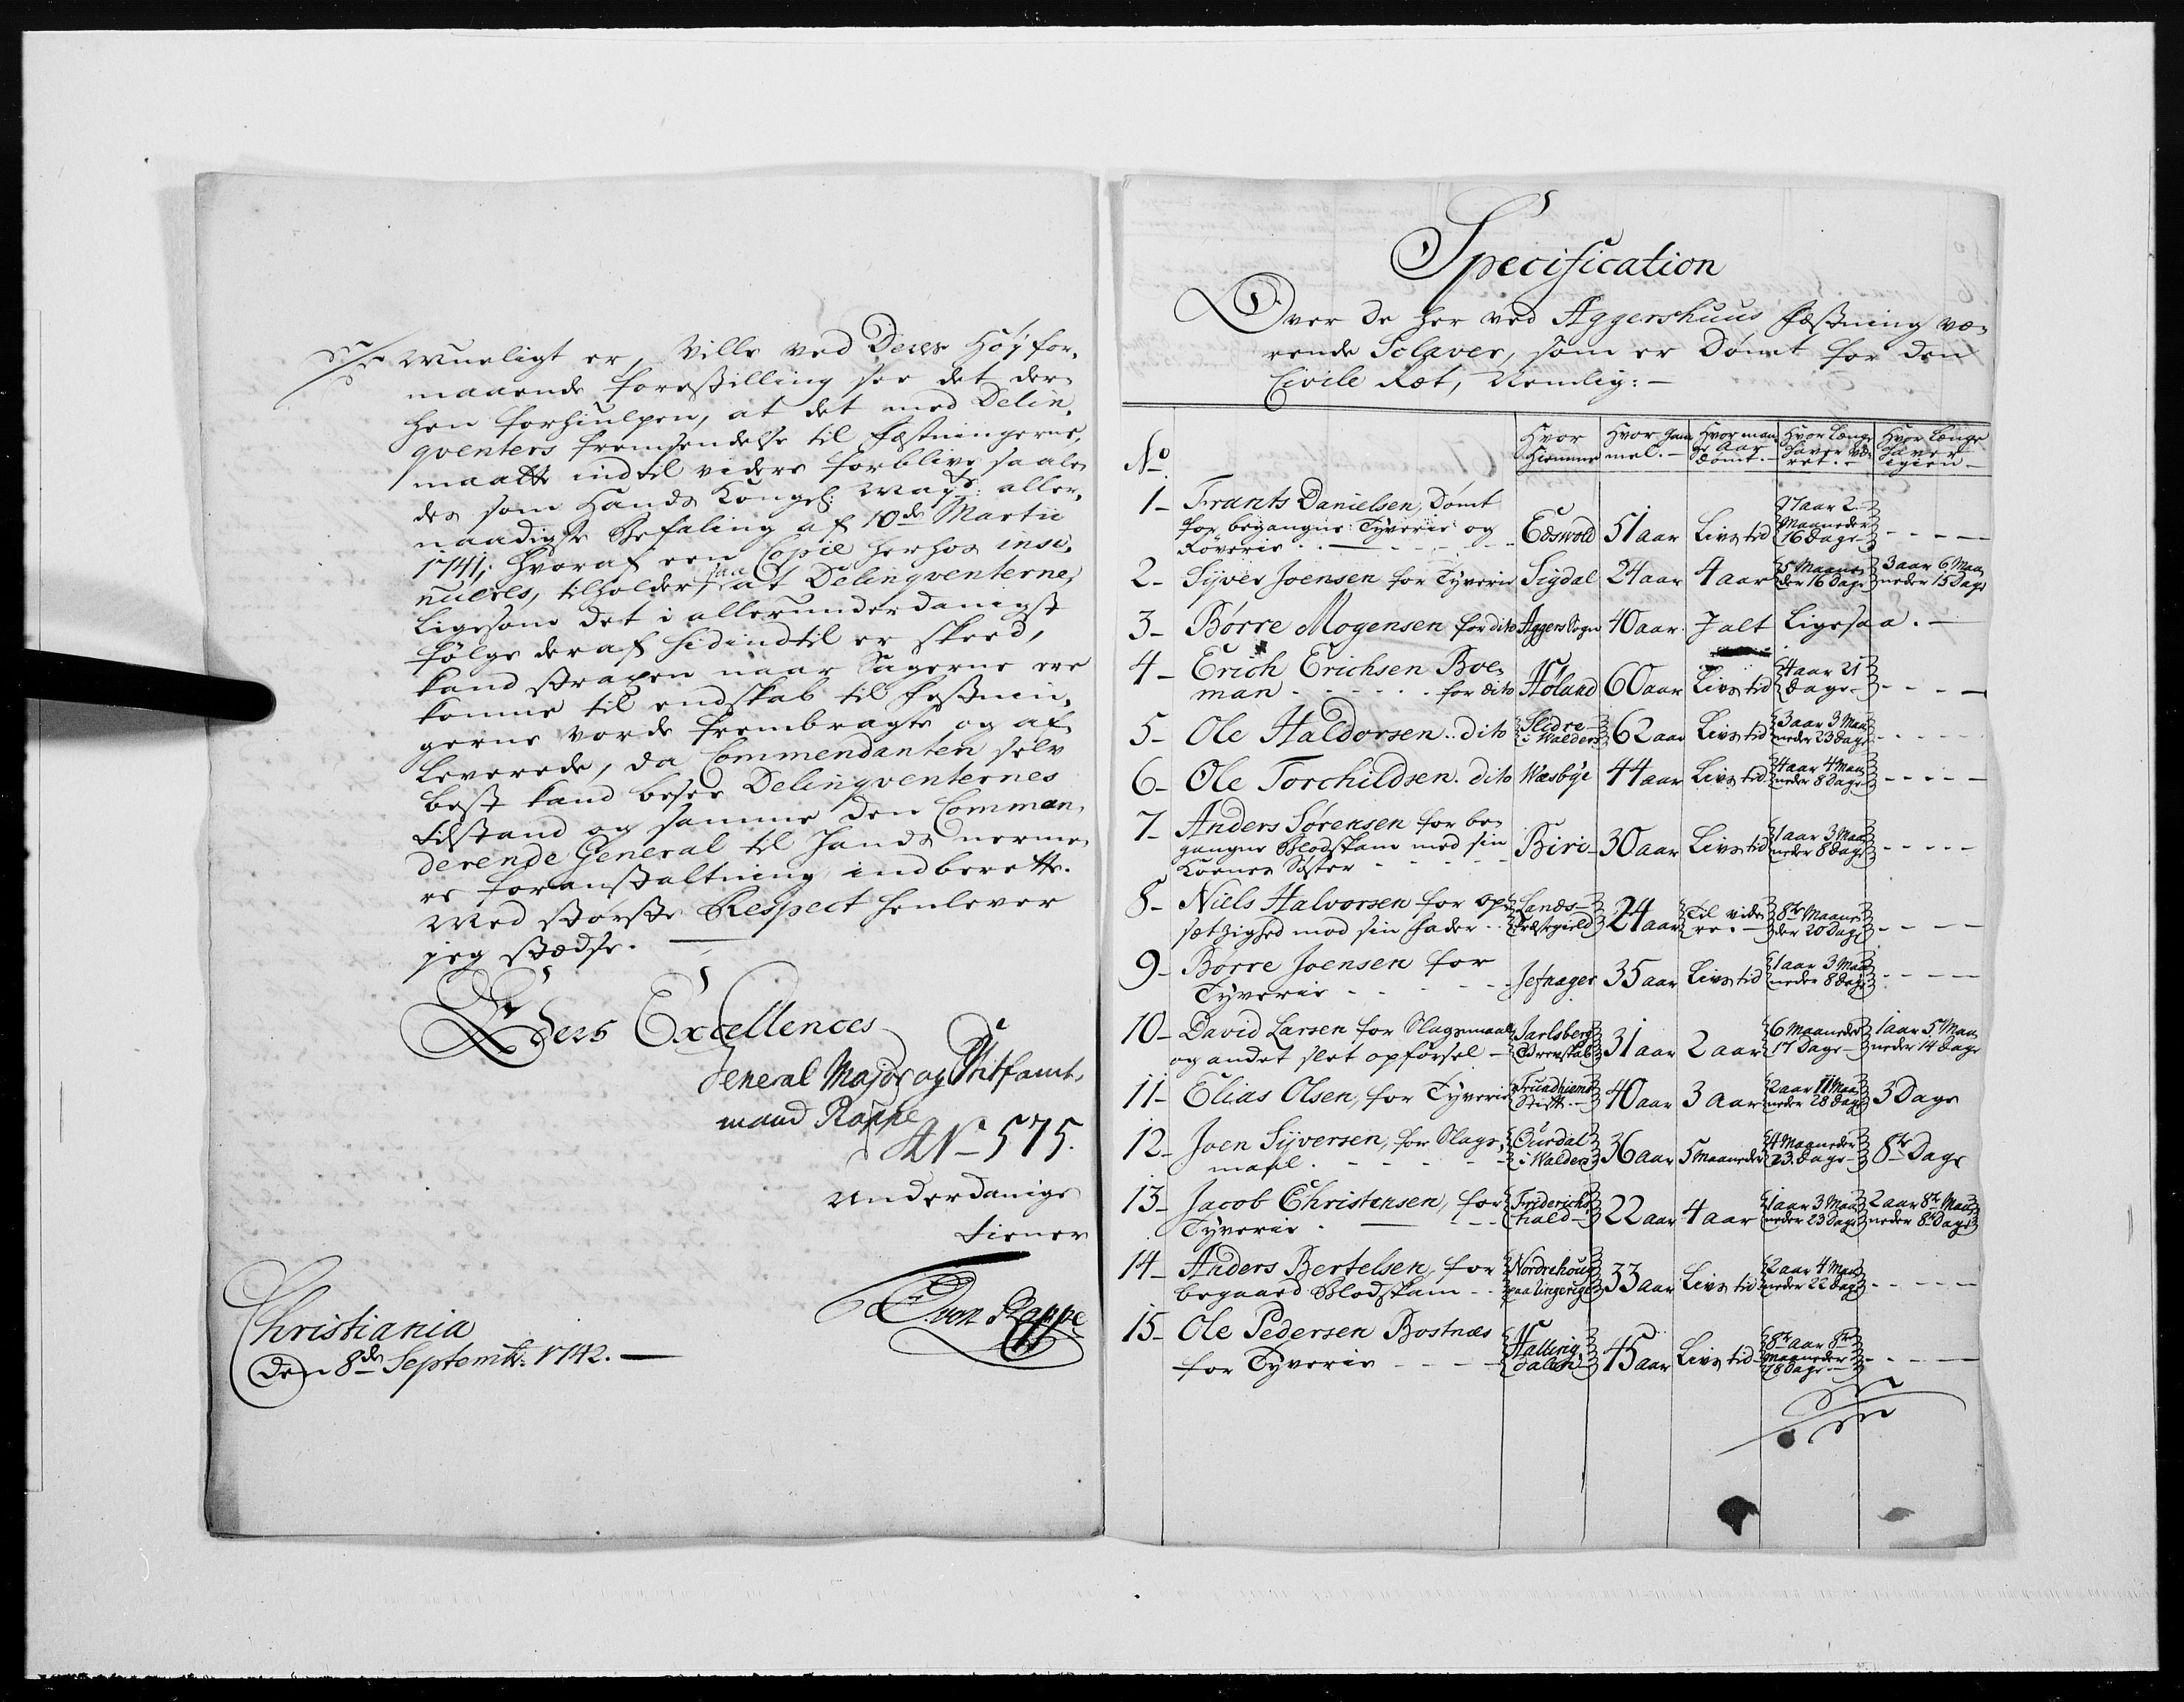 mueligt er, Ville ved Deres Høyfor,
maaende forestilling see det der,
hen forhiulpen, at det med Delin,
qventers fremsendelse til fæstningerne,
maatte indtil videre forblive saale,
des som Hands Kongel: Mays: aller,
naadigste Befaling af 10de Martii
1741, hvoraf een Copie herhos insi,
nueres, tilholder, saa at Delinqventerne,
ligesom det i allerunderdanigst
følge deraf hidindtil er skeed,
kand straxen naar Sagerne ere
komne til endskab til fæstnin,
gerne vorde frembragte og af,
leverede, da Commendanten selv
best kand besee Delinqventernes
tilstand og samme den Comman,
derende General til Hands nerme,
re foranstaltning indberette.
Med største Respect henlever
jeg stædse.
Deres Excellences
General Major og Stiftamt,
mand Rappe
A No 575.
Underdanige
tiener
von Rappe
Christiania
den 8de Septembr: 1742.
Specification
Over de her ved Aggershuus fæstning væ,
rende Sclaver, som er Dømt for den
Civile Ræt, Nemlig:
No Hvor Hiemme Hvor Gam mel. Hvor man ge Aar dømt. Hvor længe haver væ ret. Hvor længe haver igien
1 Frants Danielsen, Dømt
for begangne Tyverie og Røverie Edswold 51 aar Livs tid 17 aar 2 Maaneder 16 Dage
2 Syver Joensen for Tyverie Sigdal 24 aar 4 aar 5 Maane der 16 Dage 3 aar 6 Maa neder 15 Dage
3 Børre Mogensen for dito Aggers Sogn 40 aar Jalt Ligesaa.
4 Erich Erichsen Boe,
man for dito Høland 60 aar Livs tid 4 aar 21 dage
5 Ole Haldorsen dito Slidre i Walders 62 aar Livs tid 3 aar 3 Maa neder 23 dage
6 Ole Torchildsen dito Næsbye 44 aar Livs tid 4 aar 4 Maa neder 8 Dage
7 Anders Sørensen for be,
gangne Blodskam med sin
Koenes Søster Biri 30 aar Livs tid 1 aar 3 Maa neder 8 dage
8 Niels Halvorsen for op
sætzighed mod sin fader Lands Præstegield 24 aar Til vide re. 8te Maane der 20 Dage
9 Børre Joensen for
Tyverie Jefnager 35 aar Livs tid 1 aar 3 Maa neder 8 dage
10 David Larsen for Slagsmaal
og andet slet opførsel Jarlsberg Grevskab 31 aar 2 aar 6 Maaneder 17 Dage 1 aar 5 Maa neder 14 dage
11 Elias Olsen, for Tyverie Trundhiems Stift. 40 aar 3 Aar 2 aar 11 Maa neder 28 dage 3 Dage
12 Joen Syversen, for Slags,
maal Ourdal i Walders 36 aar 5 Maaneder 4 Maaneder 23 dage 8te Dage
13 Jacob Christensen, for
Tyverie Friderichs hald 22 aar 4 aar 1 aar 3 Maa neder 23 Dage 2 aar 8te Maa neder 8te Dage
14 Anders Bertelsen, for
begaaed Blodskam Nordrehoug paa Ringerige 33 aar Livs tid 2 aar 4 Maa neder 22 dage
15 Ole Pedersen Bostnæs
for Tyverie Halling, dalen 45 aar Livs tid 8te aar 8te Maaneder 28 dage